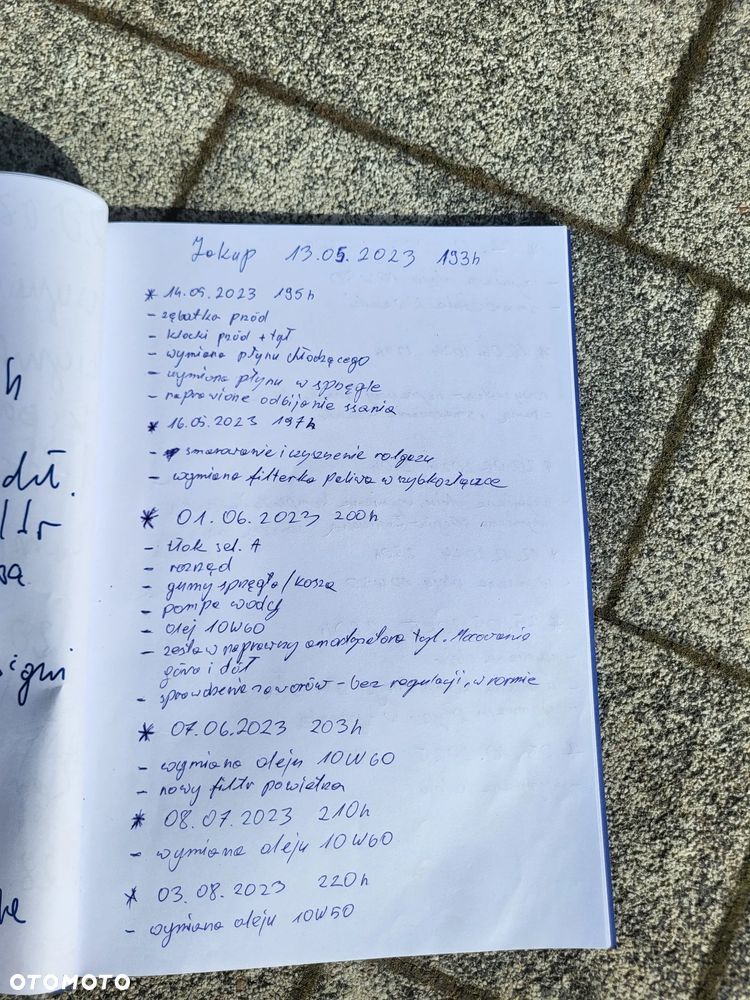 h
dół.
/1r
sa
igni
Zakup 13.05.2023 193h
* 14.05.2023 195h
- zębatka przód
- klocki przód + tył
- wymiana płynu chłodzącego
- wymiana płynu w sprzęgle
- naprawione odbijanie ssania
* 16.05.2023 197h
- smarowanie i czyszczenie rolgazu
- wymiana filterka paliwa w szybkozłączce
* 01.06.2023 200h
- tłok sel. A
- rozrząd
- gumy sprzęgła/kosza
- pompa wody
- olej 10W60
- zestaw naprawczy amortyzatora tył. Mocowania
góra i dół
- sprawdzenie zaworów - bez regulacji, w normie
* 07.06.2023 203h
- wymiana oleju 10W60
- nowy filtr powietrza
* 08.07.2023 210h
- wymiana oleju 10W60
* 03.08.2023 220h
- wymiana oleju 10W50
OTOMOTO